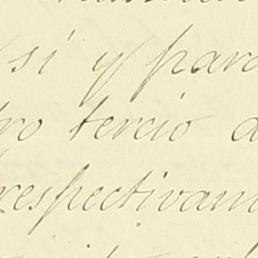 si y para
tro tercio a
respectivam